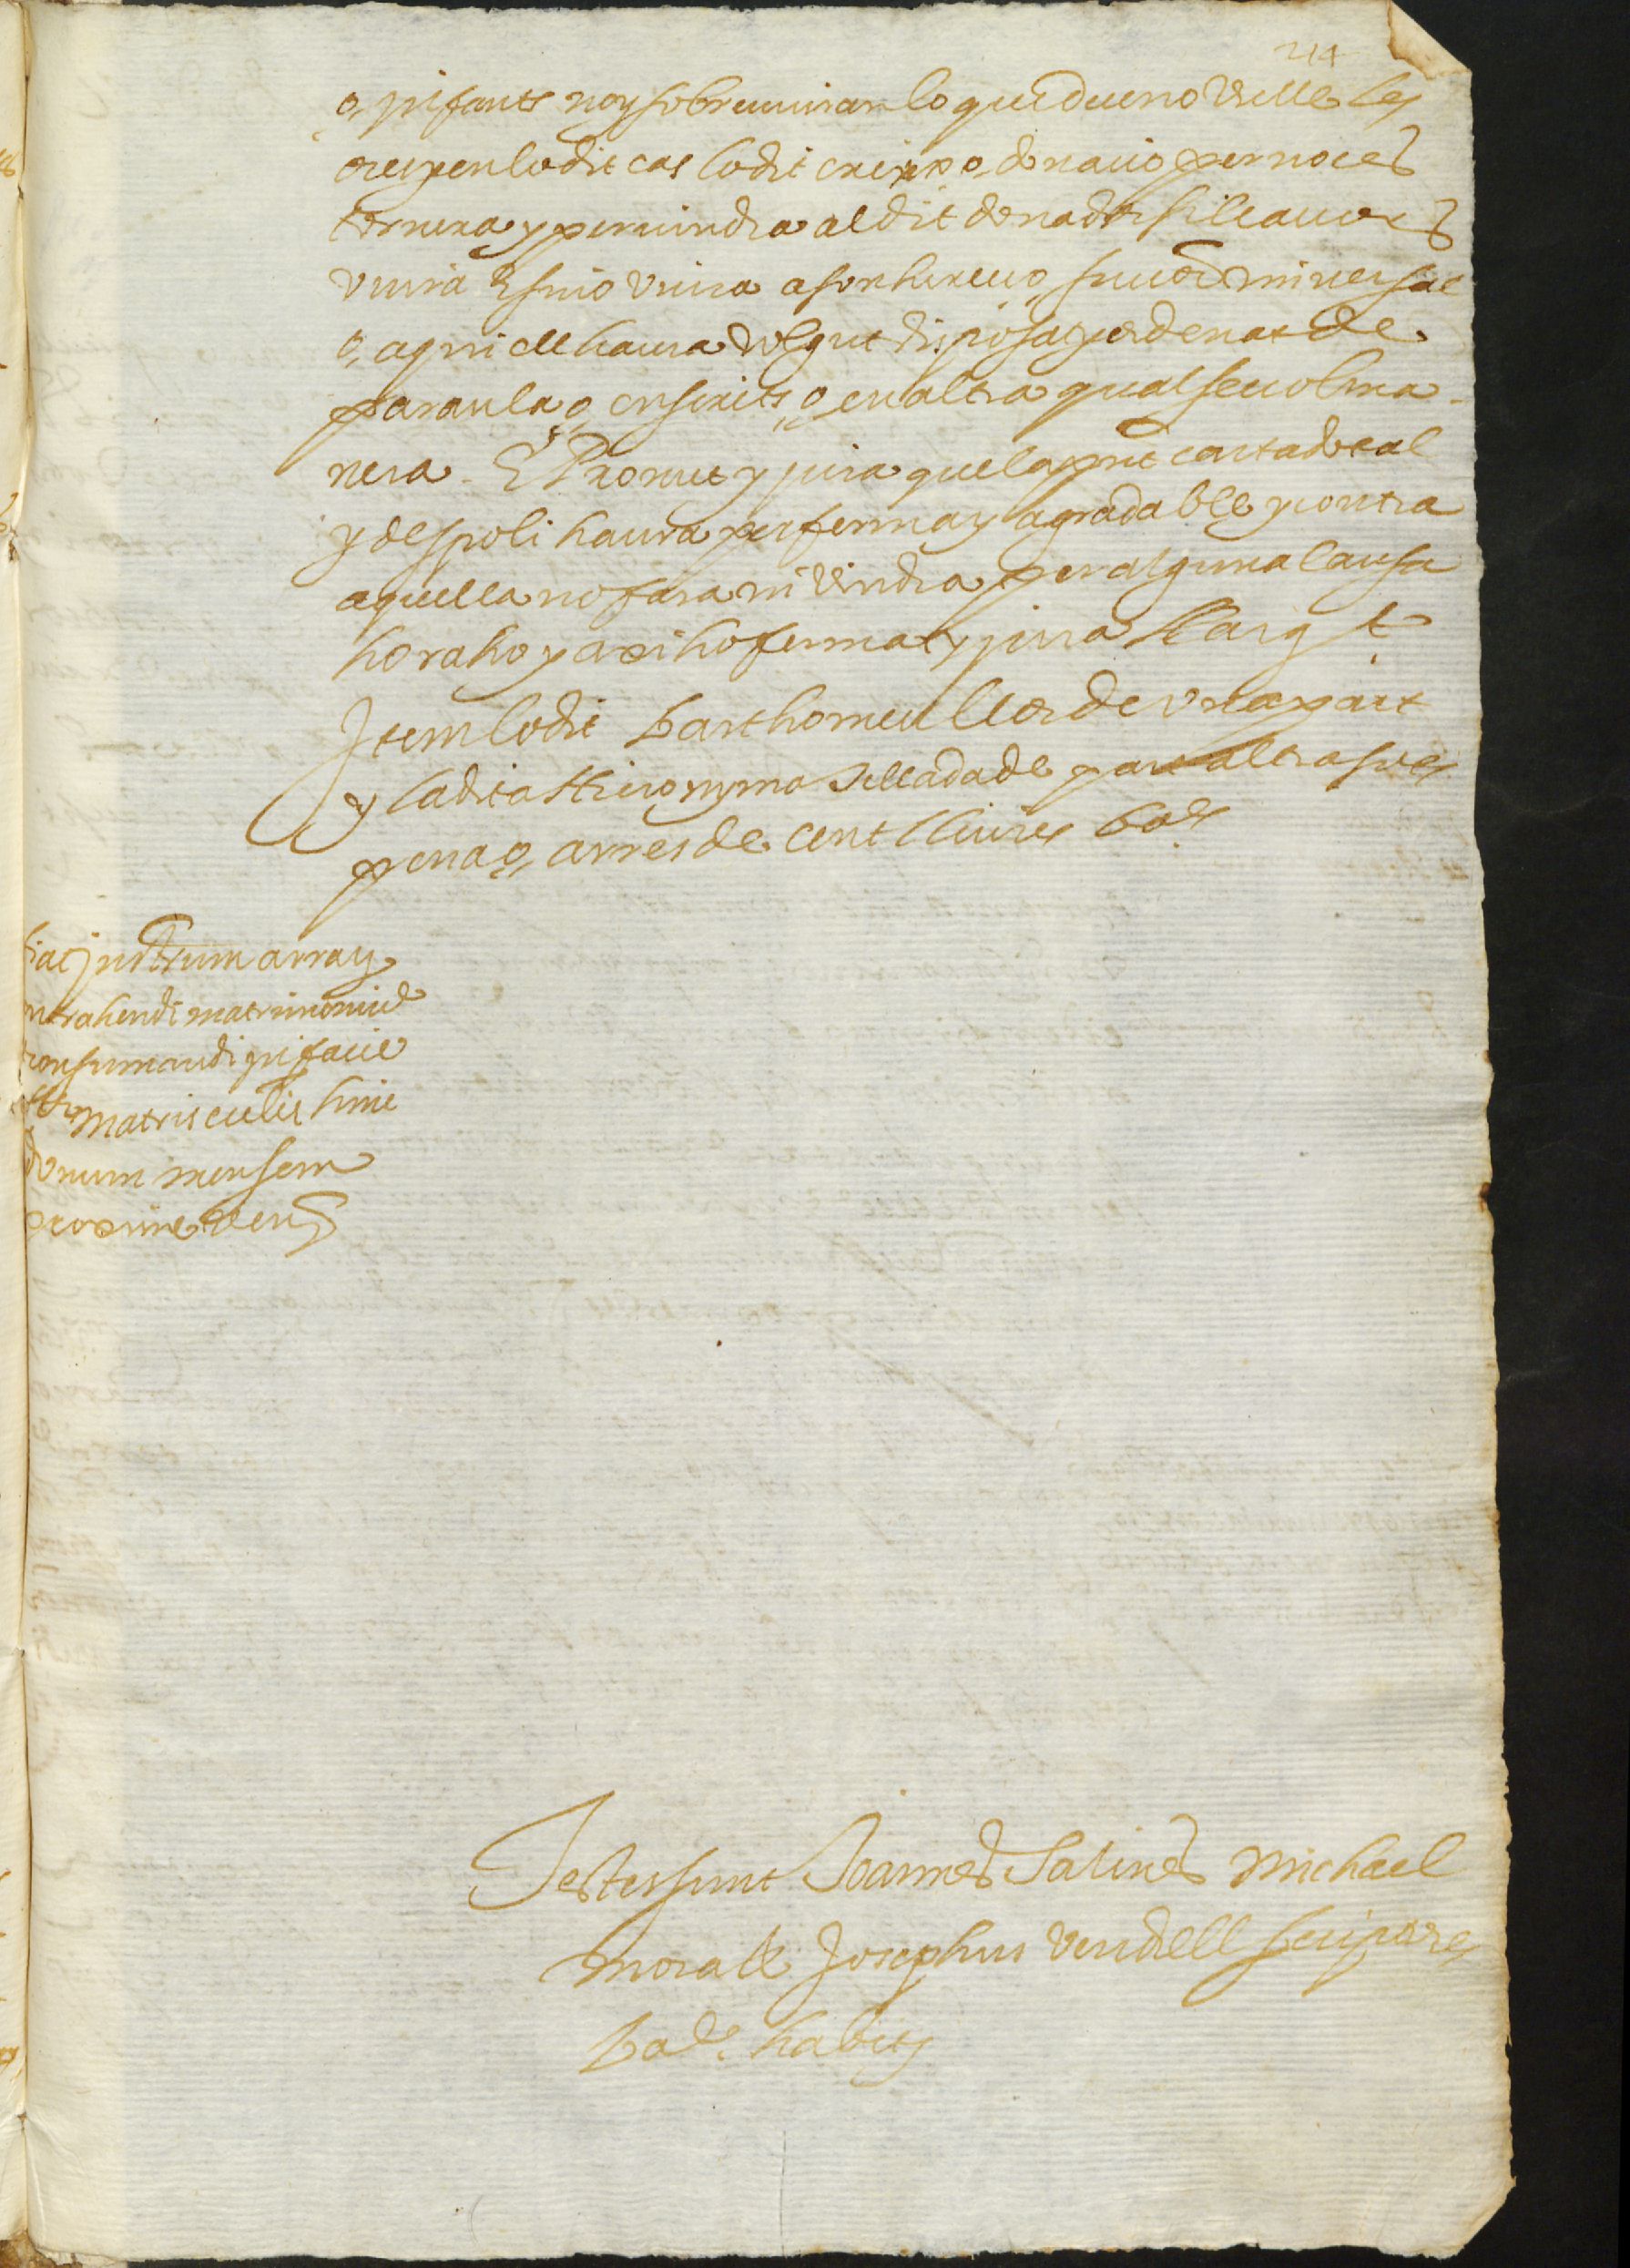 214
o, infants noy sobreuiuran lo que Deu no vulle les
ores en lo dit cas lo dit creix o, donacio per noces
tornera y peruindra al dit donador si llauors
viura E si no viura a son hereu o, succ.or vniuersal
o, a qui ell haura volgut disposat y ordenat de
paraula o, en scrits o, en altra qualseuol ma-
nera. E Promet y jura que la pnt carta dotal
y de spoli haura per ferma y agradable y contra
aquella no fara ni vindra per alguna causa
ho raho y axi ho ferma y jura Larg.t
Item lo dit Barthomeu Llor de vna part
y la dita Hieronyma Sellada de part altra sots
pena o, arres de cent lliures Bar.s
fiat jnstrum array
contrahendi matrimoniu
consumandi in facie
Stae Matris ecclie hinc
ad vnum mensem
proxime ven.
Testes sunt Joannes Salines Michael
Morale Josephus Vendell scriptores
Bar.e habits